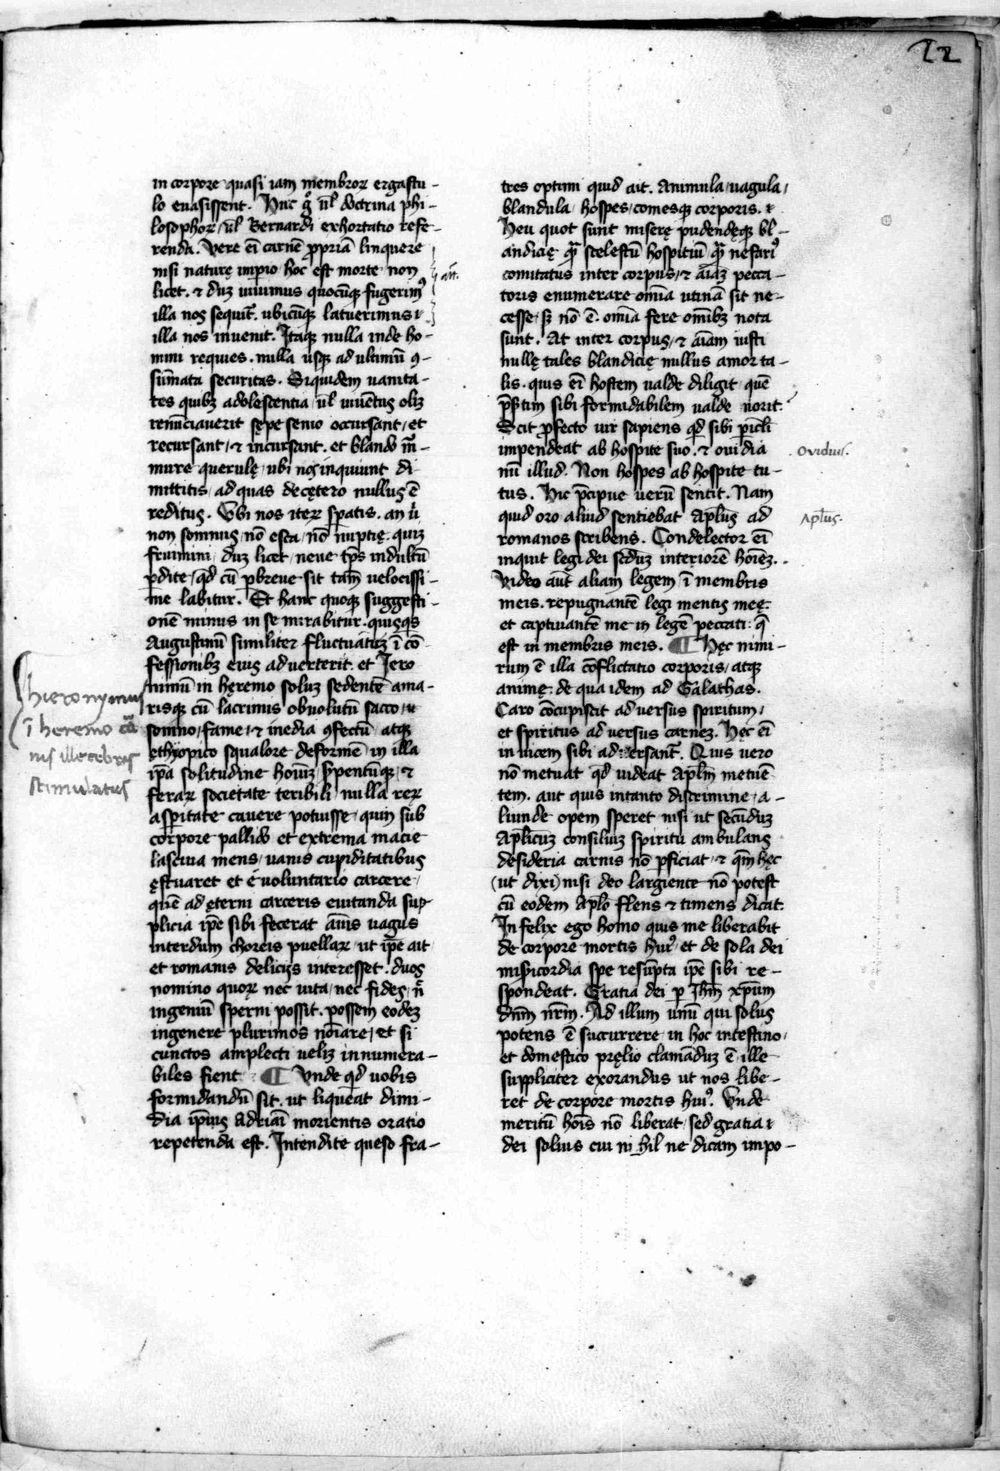 22
in corpore quasi iam membroꝝ ergastu-
lo euasissent. Huc gͦ ul̄ doctrina phi-
losophoꝝ / ul̄ Bernardi exhortatio refe-
renda. Vere ei̅ carne̅ ꝓpria̅ linquere
nisi nature̜ imꝑio hoc est morte non
licet. ⁊ duꝫ uiuimus quocu̅qꝫ fugerimꝰ
illa nos sequit᷑. ubicu̅qꝫ latuerimus ⁊
illa nos inuenit. Itaqꝫ nulla inde ho-
mini requies. nulla usqꝫ ad ultimu̅ ꝯ-
su̅mata securitas. Siquidem uanita-
tes quibꝫ adolescentia / ul̄ iuue̅tus oliꝫ
renu̅ciauerit se̜pe senio occursant / et
recursant / ⁊ incursant. et blando m̅-
mure querule̜ / ubi nos inquiunt di
mittitis / ad quas dece̜tero nullus e̅
reditus. Vbi nos iteꝝ sꝑatis. an u̅
non somnus / no̅ esca / no̅ nuptie̜. quiꝫ
fruimini / duꝫ licet / neue tp̅s indultu̅
ꝑdite / qd̅ cu̅ ꝑbreue sit tam uelocissi-
me labitur. Et hanc quoqꝫ suggesti-
one̅ minus in se mirabitur. quisqꝫ
Augustinu̅ similiter fluctuante̅ i̅ co̅-
fessionibꝫ eius aduerterit. et Iero
nimu̅ in he̜remo soluꝫ sedente̅ ama-
risqꝫ cu̅ lacrimis obuolutu̅ sacco / ⁊
somno / fame / ⁊ inedia ꝯfectu̅ / atqꝫ
e̜thyopico squalore deforme̅ in illa
ip̅a solitudine homi̅ꝫ / sꝑpentu̅qꝫ / ⁊
feraꝝ societate teribili nulla reꝝ
asꝑitate cauere potuisse / quin sub
corpore pallido et extrema macie
lasciua mens / uanis cupiditatibus
e̜stuaret et e̅ uoluntario carcere /
que̅ ad e̜terni carceris euitanda sup-
plicia ip̅e sibi fecerat ai̅us uagus
interdum choreis puellaꝝ / ut ip̅e ait /
et romanis delicijs interesset. duos
nomino quoꝝ nec uita / nec fides / n̅
ingeniu̅ sperni possit. possem eodeꝫ
ingenere plurimos no̅iare / et si
cunctos amplecti ueliꝫ innumera-
biles fient ¶ Vnde qd̅ uobis
formidandu̅ sit. ut liqueat dimi-
dia ip̅ius Adriani morientis oratio
repetenda est. Intendite queso fra-
hieronymus
i̅ heremo ca̅
nis illecebris
stimulatus
tres optimi quid ait. Animula / uagula /
blandula / hospes / comesqꝫ corporis. ⁊
Heu quot sunt misere̜ pudende̜qꝫ bl-
andicie̜ qua̅ scelestu̅ hospitiu̅ qua̅ nefariꝰ
comitatus inter corpus / ⁊ ai̅aꝫ pecca-
toris enumerare om̅ia utina̅ sit ne-
cesse. sꝫ no̅ e̅. om̅ia fere om̅ibꝫ nota
sunt. At inter corpus / ⁊ ai̅am iusti
nulle̜ tales blandicie̜ nullus amor ta-
lis. quis ei̅ hostem ualde diligit / que̅
p̅s̅tim sibi formidabilem ualde norit.
Scit ꝓfecto uir sapiens qd̅ sibi pi̅cli
impendeat ab hospite suo. ⁊ ouidia
nu̅ illud. Non hospes ab hospite tu-
tus. Hic p̅cipue ueru̅ sentit. Nam
quid oro aliud sentiebat Apl̅us ad
romanos scribens. Condelector ei̅
inquit legi dei sedꝫ interiore̅ ho̅ieꝫ.
Video aut̅ aliam legem i̅ membris
meis. repugnante̅ legi mentis mee̜.
et captiuante̅ me in lege̅ peccati: q̅
est in membris meis. ¶ He̜c nimi-
rum e̅ illa co̅flictatio corporis / atqꝫ
anime̜: de qua idem ad Galathas.
Caro co̅cupiscit aduersus spiritum /
et spiritus aduersus carneꝫ. He̜c ei̅
inuicem sibi aduersant᷑. Quis uero
no̅ metuat qd̅ uideat apl̅m metue̅
tem. aut quis intanto discrimine / a-
liunde opem speret nisi ut secu̅duꝫ
apl̅icuꝫ consiliuꝫ spiritu ambulans
desideria carnis no̅ ꝑficiat / ⁊ qm̅ he̜c
(ut dixi) nisi deo largiente no̅ potest
cu̅ eodem Aplo flens ⁊ timens dicat.
Infelix ego homo quis me liberabit
de corpore mortis huiꝰ et de sola dei
mis̅icordia spe resu̅pta ip̅e sibi re-
spondeat. Gratia dei ꝑ Ihm̅ xp̅um
dn̅m nr̅m. Ad illum unu̅ qui solus
potens e̅ succurrere in hoc intestino /
et domestico pre̜lio clama̅duꝫ e̅ / ille
suppliciter exorandus ut nos libe-
ret de corpore mortis huiꝰ. Vnde
meritu̅ ho̅is no̅ liberat / sed gratia ⁊
dei solius cui nihil ne dicam impo-
Ouidius.
Apl̅us.